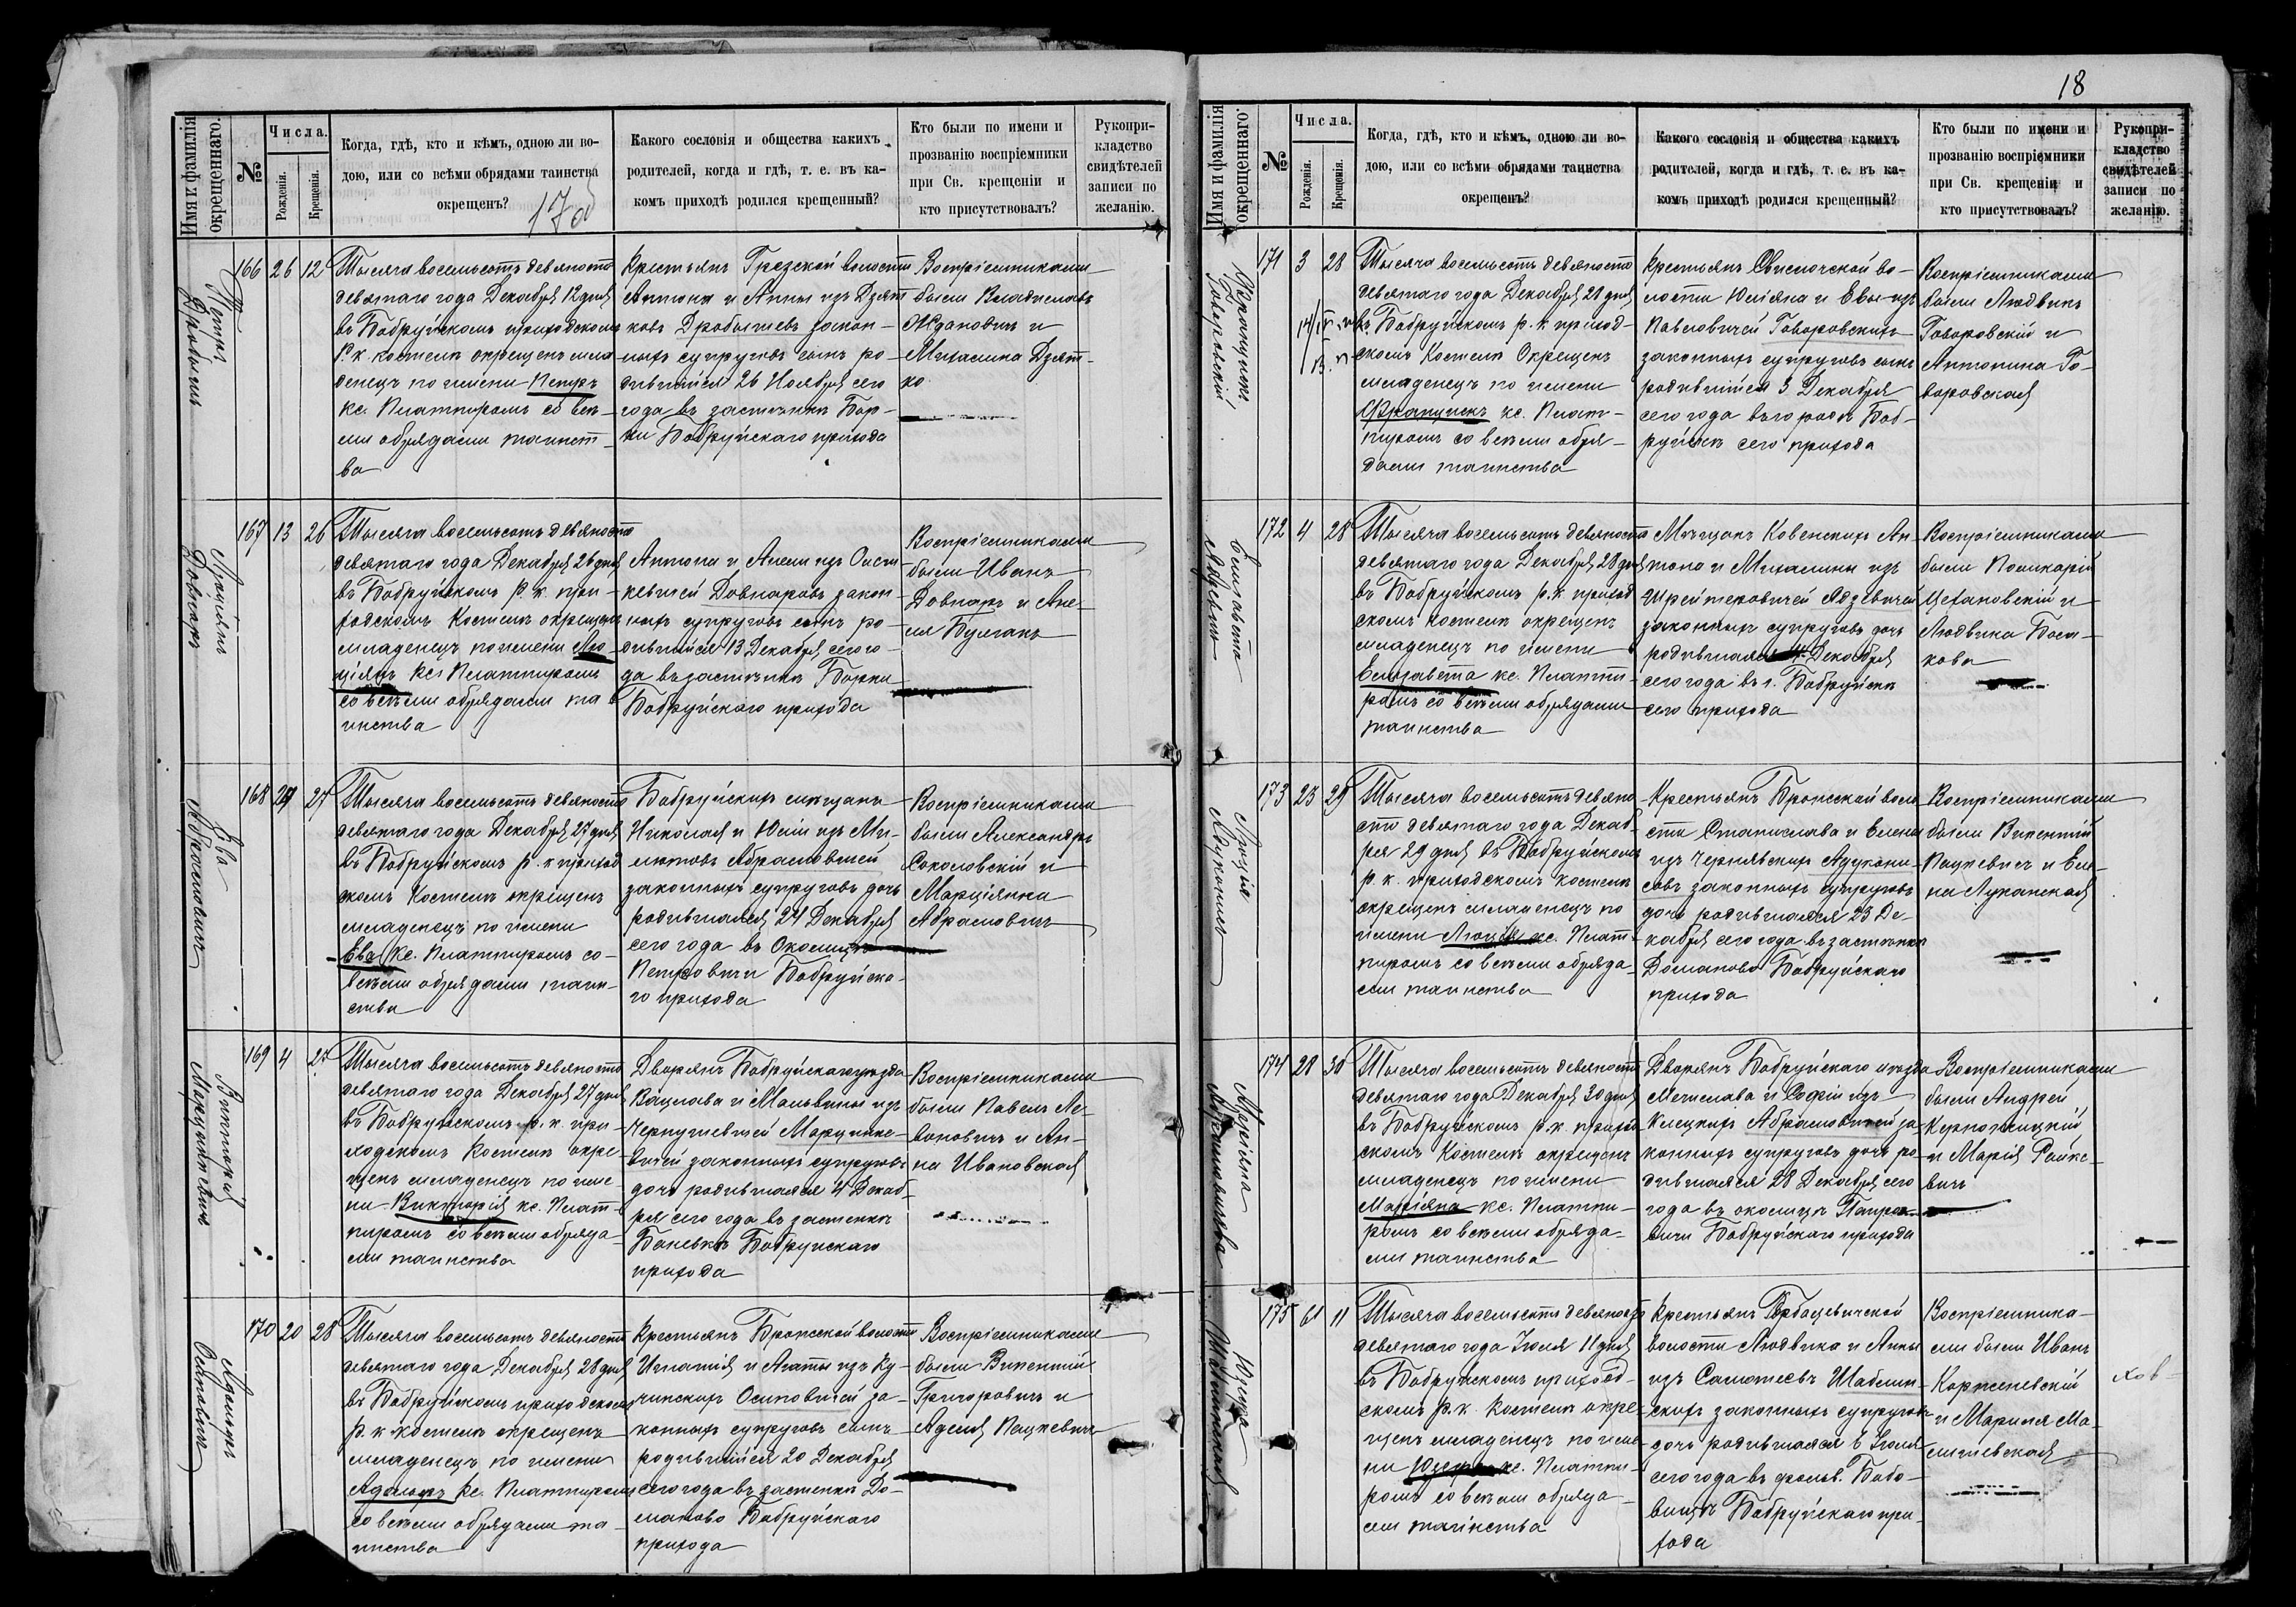 18
Имя и фамилія окрещеннаго.
№
Числа.
Рожденія.
Крещенія.
Когда, гдѣ, кто и кѣмъ, одною ли во-
дою, или со всѣми обрядами таинства
окрещенъ?
Какого сословія и общества какихъ
родителей, когда и гдѣ, т. е. въ ка-
комъ приходѣ родился крещенный?
Кто были по имени и
прозванію воспріемники
при Св. крещеніи и
кто присутствовалъ?
Рукопри-
кладство
свидѣтелей
записи по
желанію.
Петръ
166 26 12
Тысяча восемьсотъ девяносто
девятаго года Декабря 12 дня
въ Бобруйскомъ приходскомъ
Р. к. костелѣ окрещенъ мла
денецъ по имени Петръ
кс. Платпиромъ со всѣ-
ми обрядами таинст-
ва
Крестьянъ Грезской волости
Антона и Анны изъ Дзят
ковъ Дробышевъ закон-
ныхъ супруговъ сынъ ро-
дившійся 26 Ноября сего
года въ застѣнкѣ Бор-
ки Бобруйскаго прихода
Воспріемниками
были Владиславъ
Жданович и
Михалина Дзят-
ко
Люціянъ
Довнаръ
167 13 26
Тысяча восемьсотъ девяносто
девятаго года Декабря 26 дня
въ Бобруйскомъ р. к. при-
ходскомъ Костелѣ окрещенъ
младенецъ по имени Лю-
ціянъ кс. Платпиромъ
со всѣми обрядами та
инства
Антона и Анели изъ
кевичей Довнаровъ закон-
ныхъ супруговъ сынъ ро-
дившійся 13 Декабря сего го-
да въ застѣнкѣ Борки
Бобруйскаго прихода
Воспріемниками
были Иванъ
Довнаръ и Ане-
ля Булгакъ
Ева
Абрамовичъ
168 24 27
Тысяча восемьсотъ девяносто
девятаго года Декабря 27 дня
въ Бобруйскомъ р. к приход
скомъ Костелѣ окрещенъ
младенецъ по имени
Ева кс. Платпиромъ со
всѣми обрядами таин-
ства
Бобруйскихъ мѣщанъ
Николая и Юліи изъ Ми-
лютовъ Абрамовичей
законныхъ супруговъ дочь
родившаяся 24 Декабря
сего года въ Околицѣ
Петровичи Бобруйска-
го прихода
Воспріемниками
были Александръ
Соколовскій и
Марціянна
Абрамовичъ
Викторія
169 4 27
Тысяча восемьсотъ девяносто
девятаго года Декабря 27 дня
въ Бобруйскомъ р. к. при-
ходскомъ Костелѣ окре-
щенъ младенецъ по име-
ни Викторія кс. Плат-
пиромъ со всѣми обряда-
ми таинства
Дворянъ Бобруйскаго уѣзда
Вацлава и Мальвины изъ
Чернушевичей Марцинке-
вичей законныхъ супруговъ
дочь родившаяся 4 Декаб-
ря сего года въ застенкѣ
Баневкѣ Бобруйскаго
прихода
Воспріемниками
были Павелъ Ле-
вонович и Ан-
на Ивановская
Адольфъ
Осиповичъ
170 20 28
Тысяча восемьсотъ девяносто
девятаго года Декабря 28 дня
въ Бобруйскомъ приходскомъ
р. к костелѣ окрещенъ
младенецъ по имени
Адольфъ кс. Платпиромъ
со всѣми обрядами та-
инства
Крестьянъ Брожской волости
Игнатія и Агаты изъ Ку-
чинскихъ Осиповичей за-
конныхъ супруговъ сынъ
родившійся 20 Декабря
сего года въ застенкѣ До-
маново Бобруйскаго
прихода
Воспріемниками
были Викентій
Григоровичъ и
Аделя Пацкевичъ
Имя и фамилія окрещеннаго.
№
Числа.
Рожденія.
Крещенія.
Когда, гдѣ, кто и кѣмъ, одною ли во-
дою, или со всѣми обрядами таинства
окрещенъ?
Какого сословія и общества какихъ
родителей, когда и гдѣ, т. е. въ ка-
комъ приходѣ родился крещенный?
Кто были по имени и
прозванію воспріемники
при Св. крещеніи и
кто присутствовалъ?
Рукопри-
кладство
свидѣтелей
записи по
желанію.
Говоровскій
171 3 28
Тысяча восемьсотъ девяносто
девятаго года Декабря 28 дня
въ Бобруйскомъ р. к приход-
скомъ Костелѣ Окрещенъ
младенецъ по имени
Францискъ кс. Плат-
пиромъ со всѣми обря-
дами таинства
Крестьянъ Свислочской во-
лости Юліяна и Евы изъ
Павловичей Говоровскихъ
законныхъ супруговъ сынъ
родившійся 3 Декабря
сего года въ городѣ Боб-
руйскѣ сего прихода
Воспріемниками
были Людвикъ
Говоровскій и
Антонина Го-
воровская
Елизавета
172 4 28
Тысяча восемьсотъ девяносто
девятаго года Декабря 28 дня
въ Бобруйскомъ р. к. приход
скомъ костелѣ окрещенъ
младенецъ по имени
Елизавета кс. Платпи-
ромъ со всѣми обрядами
таинства
Мѣщанъ Ковенскихъ Ан-
тона и Михалины изъ
Шрейтеровичей
законныхъ супруговъ дочь
родившаяся 4 Декабря
сего года въ г. Бобруйскѣ
сего прихода
Воспріемниками
были Поликарій
Цехановскій и
Людвика Боса-
кова
Люція
173 23 29
Тысяча восемьсотъ девяно
сто девятаго года Декаб-
ря 29 дня въ Бобруйскомъ
р. к. приходскомъ костелѣ
окрещенъ младенецъ по
имени Люція кс. Плат-
пиромъ со всѣми обряда-
ми таинства
Крестьянъ Брожской воло
сти Станислава и Елены
изъ Чернявскихъ
законныхъ супруговъ
дочь родившаяся 23 Де-
кабря сего года въ застѣнкѣ
Доманово Бобруйскаго
прихода
Воспріемниками
были Викентій
Пацкевич и Еле-
на Луканская
174 28 30
Тысяча восемьсотъ девяносто
девятаго года Декабря 30 дня
въ Бобруйскомъ р. к. приход
скомъ Костелѣ окрещенъ
младенецъ по имени
Маріяна кс. Платпи-
ромъ со всѣми обряда-
ми таинства
Дворянъ Бобруйскаго уѣзда
Мечислава и Софіи изъ
Клецкихъ Абрамовичей за-
конныхъ супруговъ дочь ро-
дившаяся 28 Декабря сего
года въ околицѣ
вичи Бобруйскаго прихода
Воспріемниками
были Андрей
и Марія Райке-
вичъ
175 6 11
Тысяча восемьсотъ девяносто
девятаго года Іюля 11 дня
въ Бобруйскомъ приход-
скомъ р. к. Костелѣ окре-
щенъ младенецъ по име-
ни Юзефа кс. Платпи-
ромъ со всѣми обряда-
ми таинства
Крестьянъ Горбацевичской
волости Людвика и Анны
изъ Саматеевъ Шаблин-
скихъ законныхъ супруговъ
дочь родившаяся 6 Іюля
сего года въ фольв. Бабо-
вищѣ Бобруйскаго при-
хода
Воспріемника-
ми были Иванъ
Корженевскій
и Мариля Ма-
лишевская